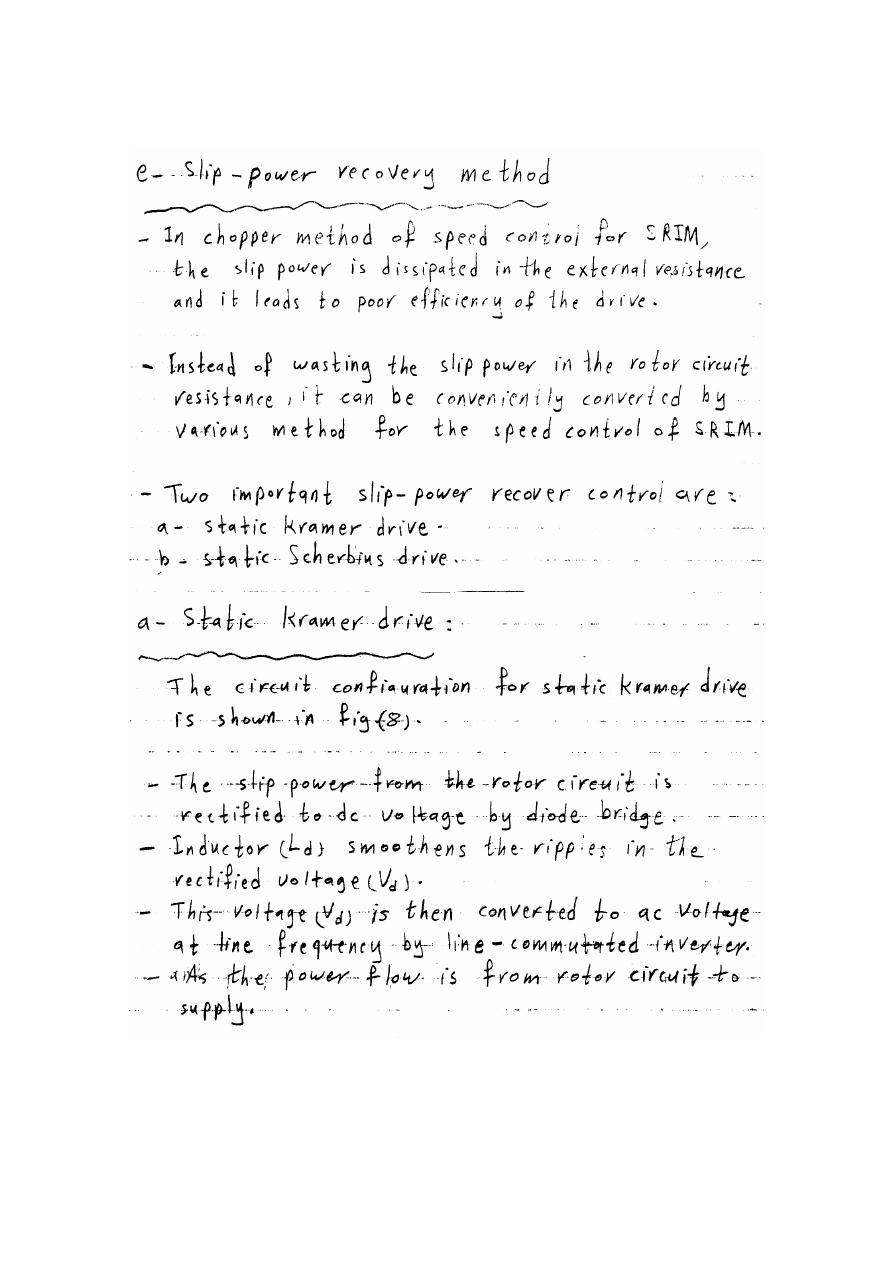 e- Slip-power recovery method
- In chopper method of speed control for SRIM,
the slip power is dissipated in the external resistance
and it leads to poor efficiency of the drive.
- Instead of wasting the slip power in the rotor circuit
resistance, it can be conveniently converted by
various method for the speed control of SRIM.
- Two important slip-power recover control are:
a- static Kramer drive.
b- static Scherbius drive.
a- Static Kramer drive:
The circuit configuration for static kramer drive
is shown in fig(8).
- The slip power from the rotor circuit is
rectified to dc voltage by diode bridge.
- Inductor (Ld) smoothens the ripples in the
rectified voltage (Vd).
- This voltage (Vd) is then converted to ac voltage
at line frequency by line-commutated inverter.
- As the power flow is from rotor circuit to
supply.